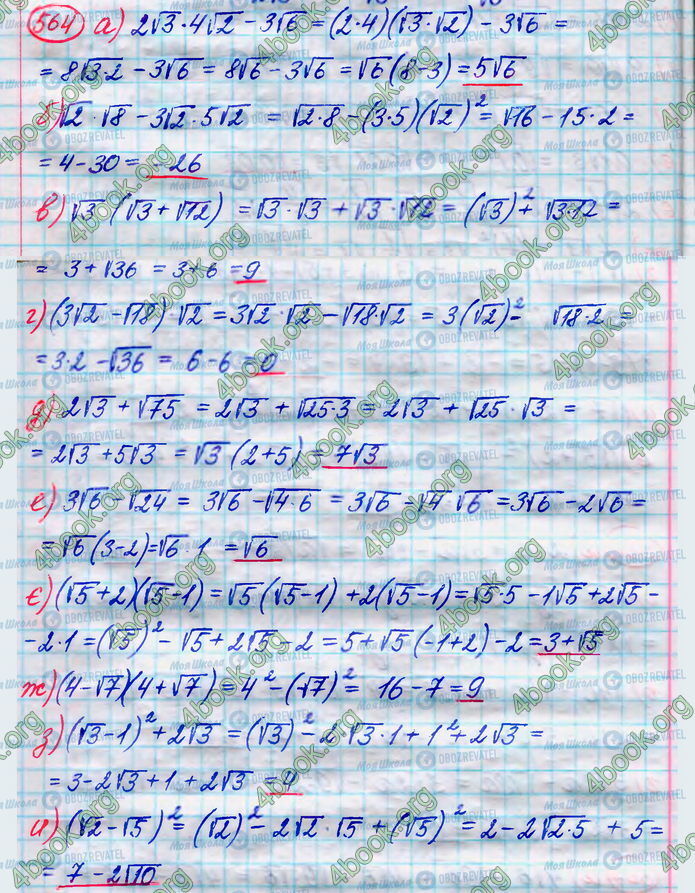 564 а) 2√3·4√2 − 3√6 = (2·4)(√3·√2) − 3√6 =
= 8√3·2 − 3√6 = 8√6 − 3√6 = √6(8−3) = 5√6
б) √2·√8 − 3√2·5√2 = √2·8 − (3·5)(√2)² = √16 − 15·2 =
= 4 − 30 = −26
в) √3(√3 + √12) = √3·√3 + √3·√12 = (√3)² + √3·12 =
= 3 + √36 = 3 + 6 = 9
г) (3√2 − √18)·√2 = 3√2·√2 − √18·√2 = 3(√2)² − √18·2 =
= 3·2 − √36 = 6 − 6 = 0
д) 2√3 + √75 = 2√3 + √25·3 = 2√3 + √25·√3 =
= 2√3 + 5√3 = √3(2+5) = 7√3
е) 3√6 − √24 = 3√6 − √4·6 = 3√6 − √4·√6 = 3√6 − 2√6 =
= √6(3−2) = √6·1 = √6
є) (√5+2)(√5−1) = √5(√5−1) + 2(√5−1) = √5·5 − 1√5 + 2√5 −
− 2·1 = (√5)² − √5 + 2√5 − 2 = 5 + √5(−1+2) − 2 = 3+√5
ж) (4−√7)(4+√7) = 4² − (√7)² = 16 − 7 = 9
з) (√3−1)² + 2√3 = (√3)² − 2·√3·1 + 1² + 2√3 =
= 3 − 2√3 + 1 + 2√3 = 4
и) (√2−√5)² = (√2)² − 2√2·√5 + (√5)² = 2 − 2√2·5 + 5 =
= 7 − 2√10